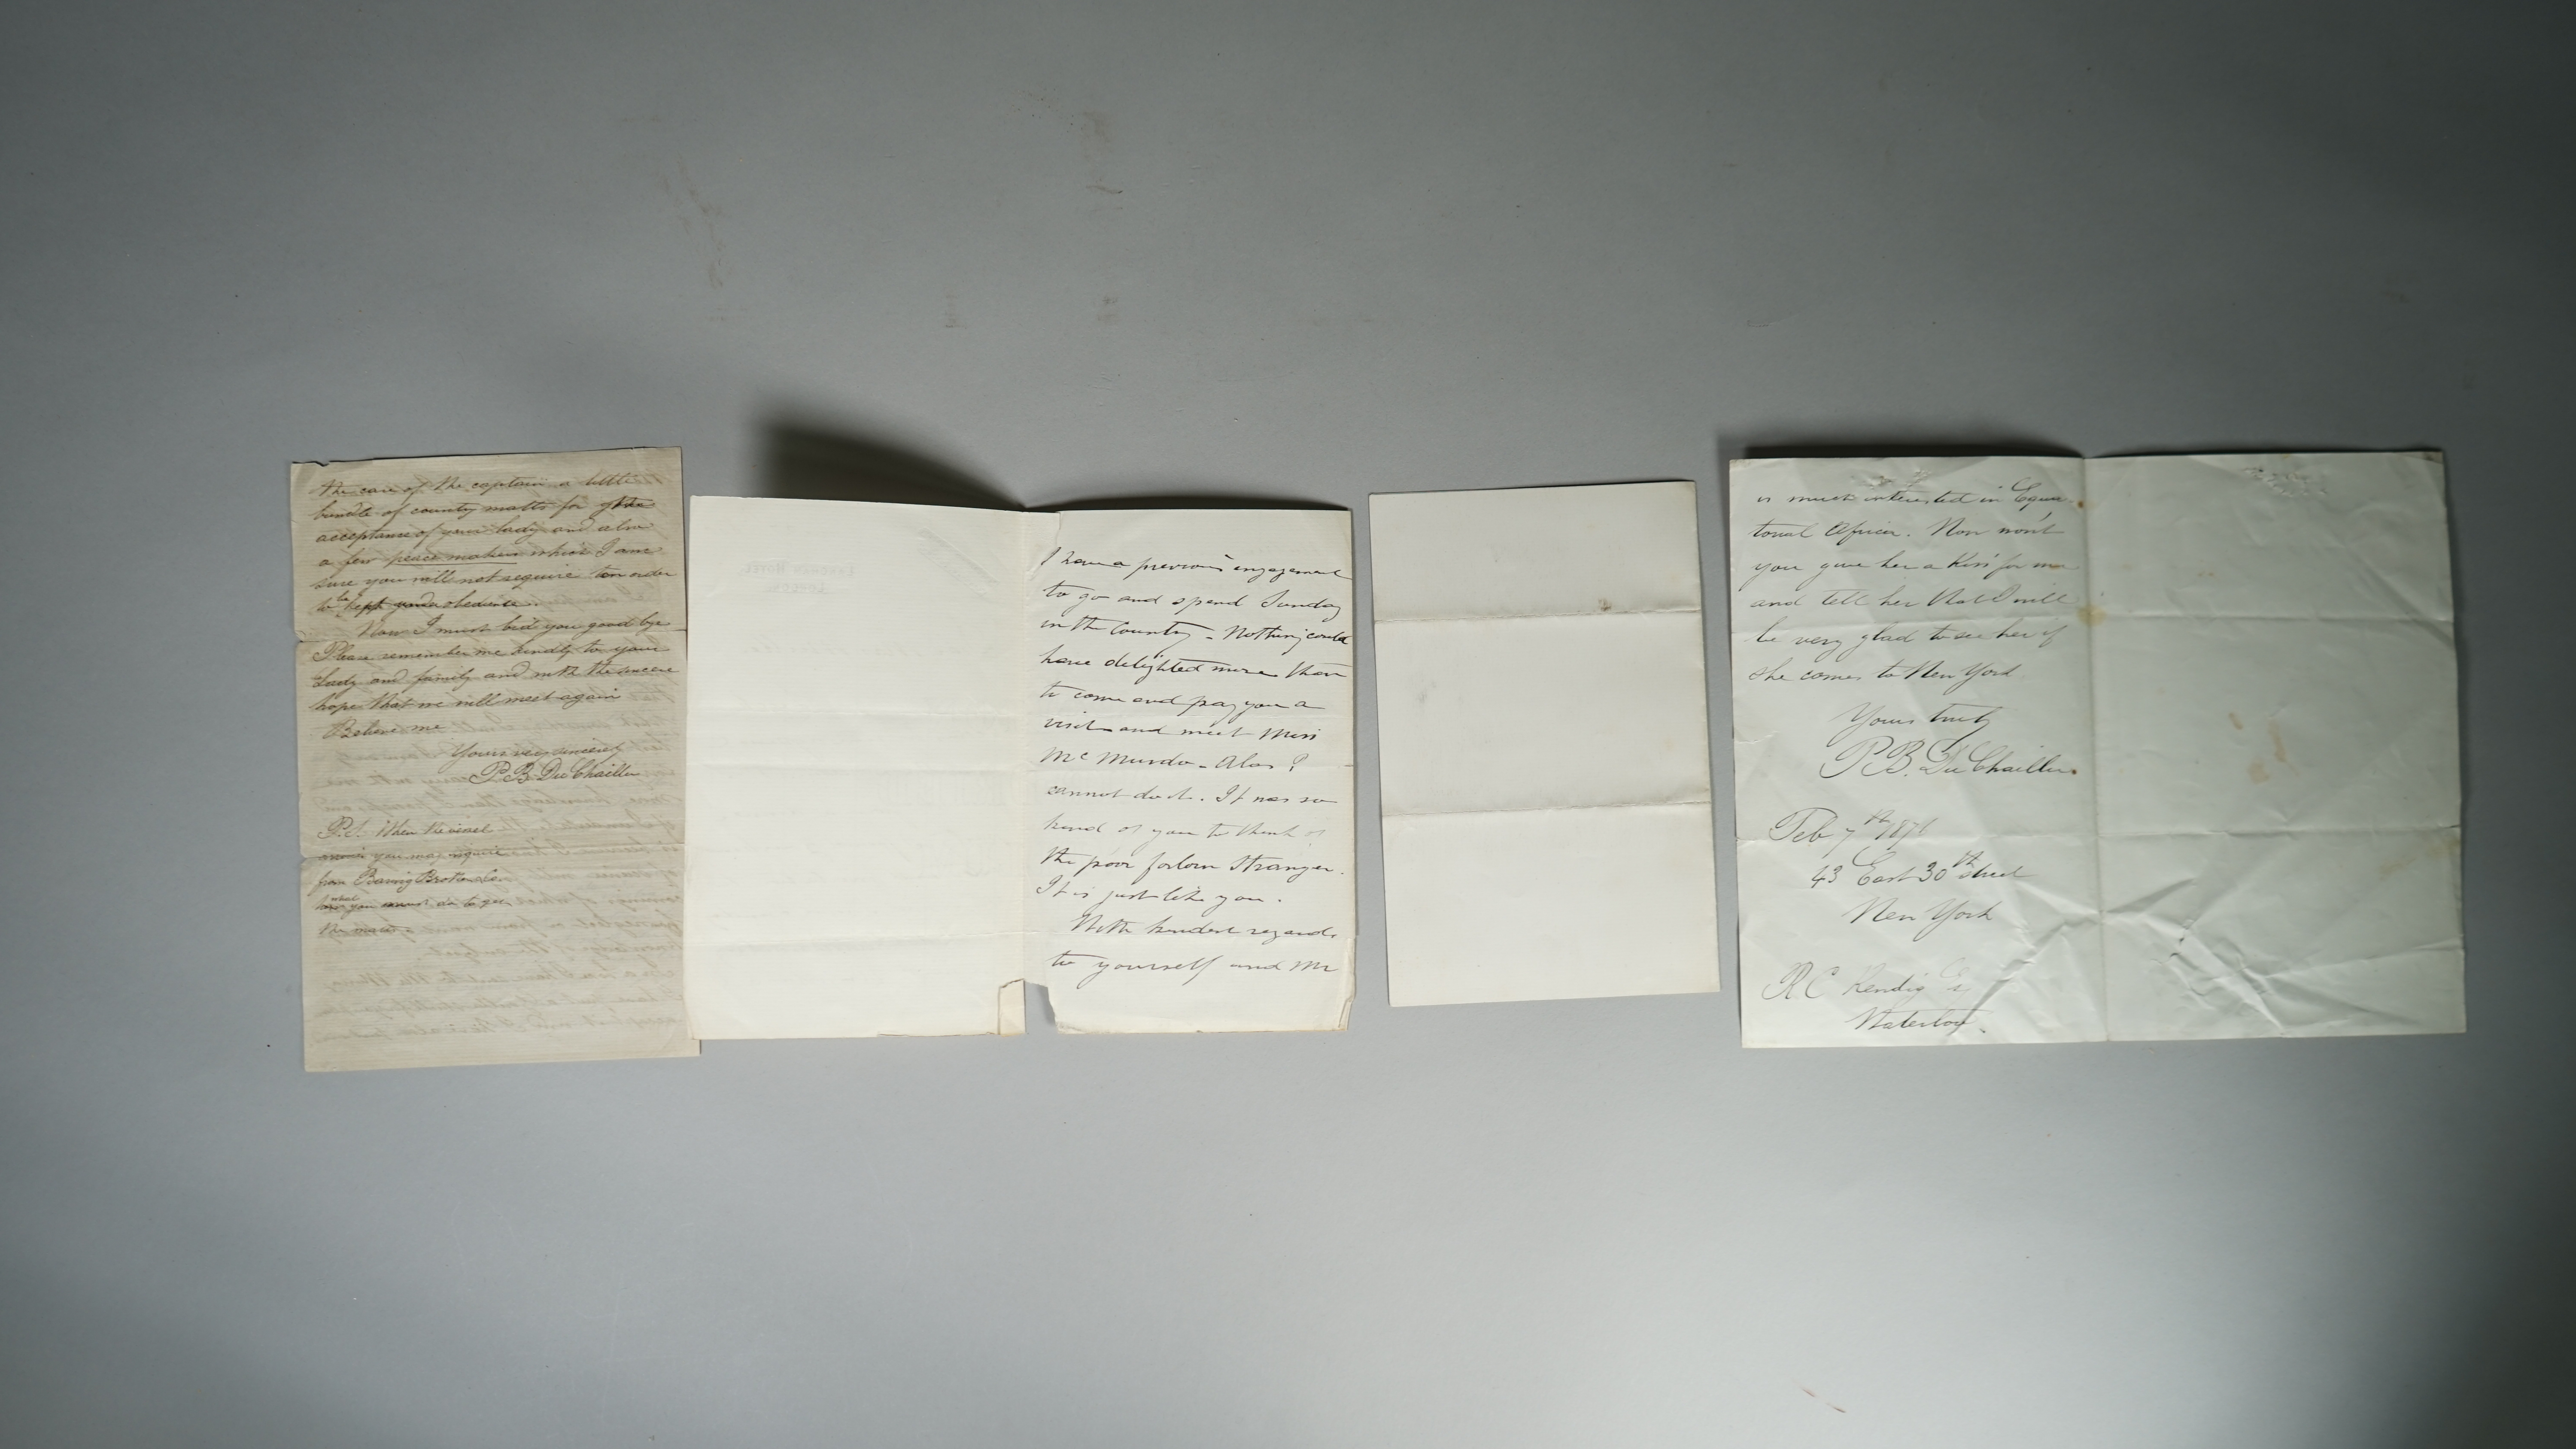 the care of the captain a little
bundle of county matts for the
acceptance of your lady and also
a few peace makers which I am
sure you will not require ten order
to be kept obedience.
Now I must bid you good bye
Please remember me kindly to your
Lady and family and with the sincere
hope that we will meet again
Believe me
Yours very sincerely
P.B. Du Chaillu
P.S. When the vessel
arrives you may inquire
from Baring Brothers Co
what you must do to get
the matts
LANGHAM HOTEL
LONDON
I have a previous engagement
to go and spend Sunday
in the Country - Nothing could
have delighted more than
to come and pay you a
visit and meet Miss
McMurdo - Alas I
cannot do it. It was so
kind of you to think of
the poor forlorn Stranger.
It is just like you.
With kindest regards
to yourself and Mr
is much interested in Equa-
torial Africa. Now wont
you give her a Kiss for me
and tell her that I will
be very glad to see her if
she comes to New York
Yours truly
P.B. Du Chaillu
Feb 7th 1871
43 East 30th street
New York
R.C Kendig Esq
Waterloo.